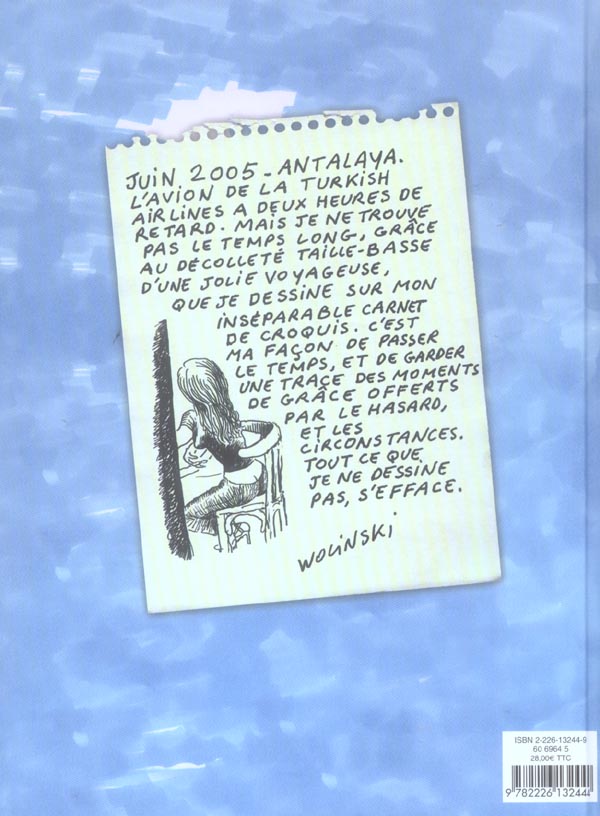 JUIN 2005 - ANTALAYA.
L'AVION DE LA TURKISH
AIRLINES A DEUX HEURES DE
RETARD. MAIS JE NE TROUVE
PAS LE TEMPS LONG, GRÂCE
AU DÉCOLLETÉ TAILLE-BASSE
D'UNE JOLIE VOYAGEUSE,
QUE JE DESSINE SUR MON
INSÉPARABLE CARNET
DE CROQUIS. C'EST
MA FAÇON DE PASSER
LE TEMPS, ET DE GARDER
UNE TRACE DES MOMENTS
DE GRÂCE OFFERTS
PAR LE HASARD,
ET LES
CIRCONSTANCES.
TOUT CE QUE
JE NE DESSINE
PAS, S'EFFACE.
WOLINSKI
ISBN 2-226-13244-9
60 6964 5
28,00€ TTC
9 782226 132444